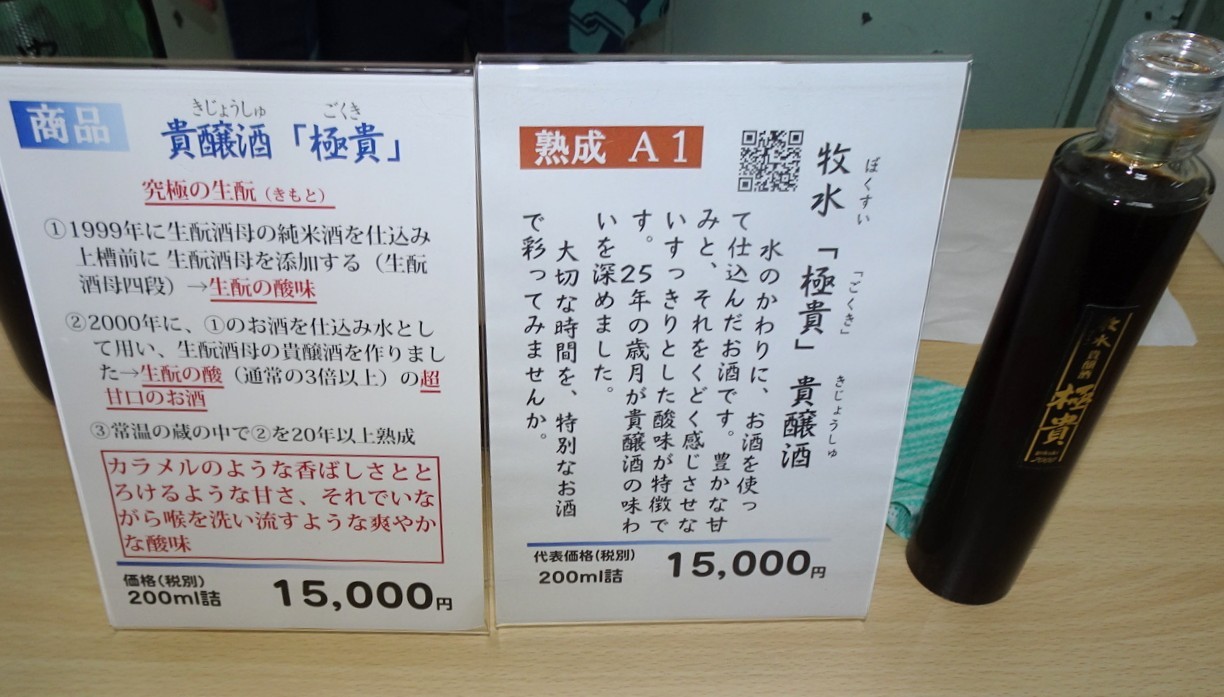 商品
きじょうしゅ ごくき
貴醸酒「極貴」
究極の生酛(きもと)
①1999年に生酛酒母の純米酒を仕込み
上槽前に 生酛酒母を添加する(生酛
酒母四段)→生酛の酸味
②2000年に、①のお酒を仕込み水とし
て用い、生酛酒母の貴醸酒を作りまし
た→生酛の酸(通常の3倍以上)の超
甘口のお酒
③常温の蔵の中で②を20年以上熟成
カラメルのような香ばしさとと
ろけるような甘さ、それでいな
がら喉を洗い流すような爽やか
な酸味
価格(税別)
200ml詰 15,000円
熟成 A1
ぼくすい 「ごくき」 きじょうしゅ
牧水「極貴」貴醸酒
水のかわりに、お酒を使っ
て仕込んだお酒です。豊かな甘
みと、それをくどく感じさせな
いすっきりとした酸味が特徴で
す。25年の歳月が貴醸酒の味わ
いを深めました。
大切な時間を、特別なお酒
で彩ってみませんか。
代表価格(税別)
200ml詰 15,000円
牧水
貴醸酒
極貴
2000